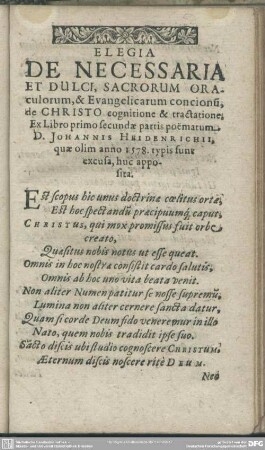 ELEGIA
DE NECESSARIA
ET DULCI, SACRORUM ORA-
culorum, & Evangelicarum concionū,
de CHRISTO cognitione & tractatione,
Ex Libro primo secundæ partis poëmatum
D. JOHANNIS HEIDENRICHII,
quæ olim anno 1578. typis sunt
excusa, huc appo-
sita.
Est scopus hic unus doctrinæ cœlitus ortæ,
Est hoc spectandū præcipuumq; caput,
CHRISTUS, qui mox promissus fuit orbe
creato,
Quæsitus nobis notus ut esse queat.
Omnis in hoc nostræ consistit cardo salutis,
Omnis ab hoc uno vita beata venit.
Non aliter Numen patitur se nosse supremū,
Lumina non aliter cernere sancta datur,
Quam si corde Deum fido veneremur in illo
Nato, quem nobis tradidit ipse suo.
Sācto discis ubi studio cognoscere CHRISTUM,
Æternum discis noscere ritè DEUM.
Nec